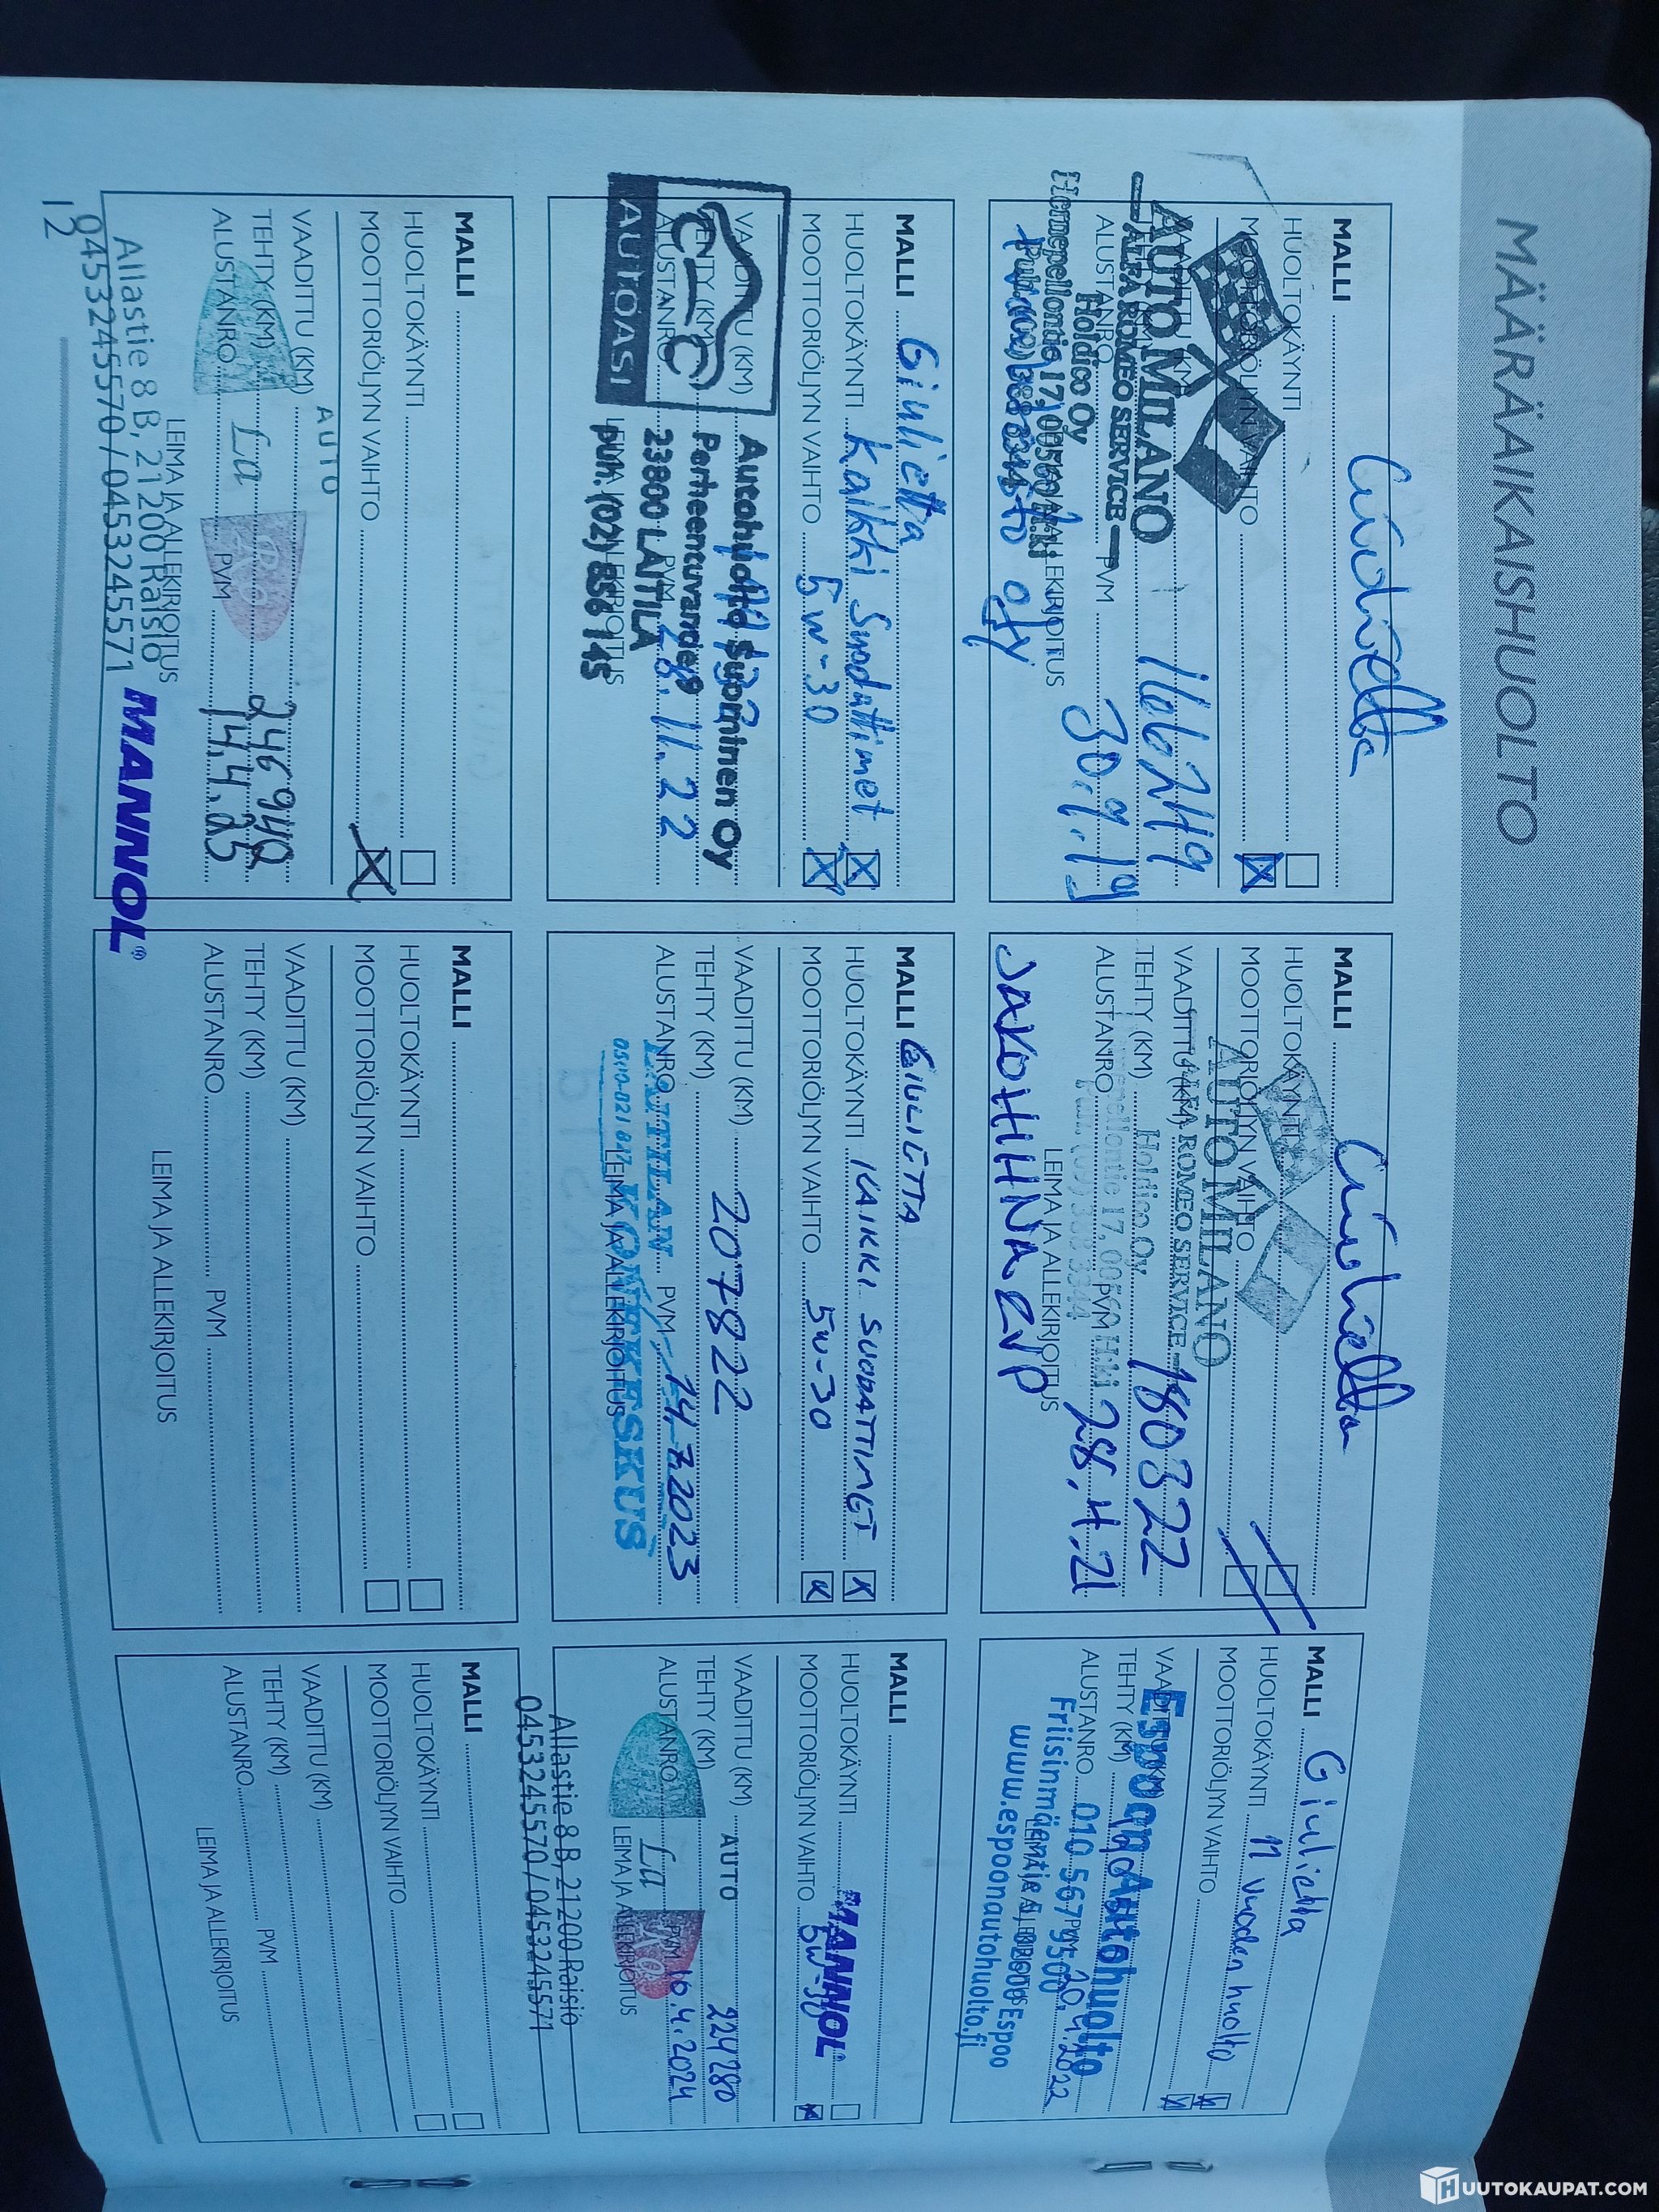 MÄÄRÄAIKAISHUOLTO
MALLI
HUOLTOKÄYNTI
MOOTTORIÖLJYN VAIHTO
VAADITTU (KM)
AUTO MILANO
ALFA ROMEO SERVICE
166249
Holdico Oy
ALUSTANRO
PVM
30.9.19
Hernepellontie 17, 00560 H:ki
LEIMA JA ALLEKIRJOITUS
MALLI
HUOLTOKÄYNTI
MOOTTORIÖLJYN VAIHTO
AUTO MILANO
VAADITTU (KM)
ALFA ROMEO SERVICE
180322
TEHTY (KM)
Holdico Oy
ALUSTANRO
PVM
28.4.21
LEIMA JA ALLEKIRJOITUS
JAKOHIHNA.
MALLI Giulietta
HUOLTOKÄYNTI 11 Vuoden huolto
MOOTTORIÖLJYN VAIHTO
VAADITTU (KM)
Espoon Autohuolto
TEHTY (KM)
ALUSTANRO
010 567 9500
PVM
Friisinmäentie
Espoo
www.espoonautohuolto.fi
MALLI Giulietta
HUOLTOKÄYNTI Kaikki Suodattimet
MOOTTORIÖLJYN VAIHTO 5W-30
VAADITTU (KM)
Autohuolto Suominen Oy
TEHTY (KM)
Perheentuvantie 9
ALUSTANRO
23800 LAITILA
PVM
28.11.22
AUTOASI
LEIMA JA ALLEKIRJOITUS
puh. (02) 856 145
MALLI GIULIETTA
HUOLTOKÄYNTI KAIKKI SUODATTIMET
MOOTTORIÖLJYN VAIHTO 5W-30
VAADITTU (KM)
207822
TEHTY (KM)
ALUSTANRO
PVM 14.7.2023
LAITILAN
KONEKESKUS
LEIMA JA ALLEKIRJOITUS
MALLI
HUOLTOKÄYNTI
MANNOL
MOOTTORIÖLJYN VAIHTO 5W-30
VAADITTU (KM)
AUTO
224280
TEHTY (KM)
ALUSTANRO
La
PVM 16.4.2024
LEIMA JA ALLEKIRJOITUS
Allastie 8 B, 21200 Raisio
0453245570 / 0453245571
MALLI
HUOLTOKÄYNTI
MOOTTORIÖLJYN VAIHTO
AUTO
VAADITTU (KM)
TEHTY (KM)
La
246940
ALUSTANRO
PVM
14.4.25
LEIMA JA ALLEKIRJOITUS
Allastie 8 B, 21200 Raisio
MANNOL®
0453245570 / 0453245571
MALLI
HUOLTOKÄYNTI
MOOTTORIÖLJYN VAIHTO
VAADITTU (KM)
TEHTY (KM)
ALUSTANRO
PVM
LEIMA JA ALLEKIRJOITUS
MALLI
HUOLTOKÄYNTI
MOOTTORIÖLJYN VAIHTO
VAADITTU (KM)
TEHTY (KM)
ALUSTANRO
PVM
LEIMA JA ALLEKIRJOITUS
12
HUUTOKAUPAT.COM